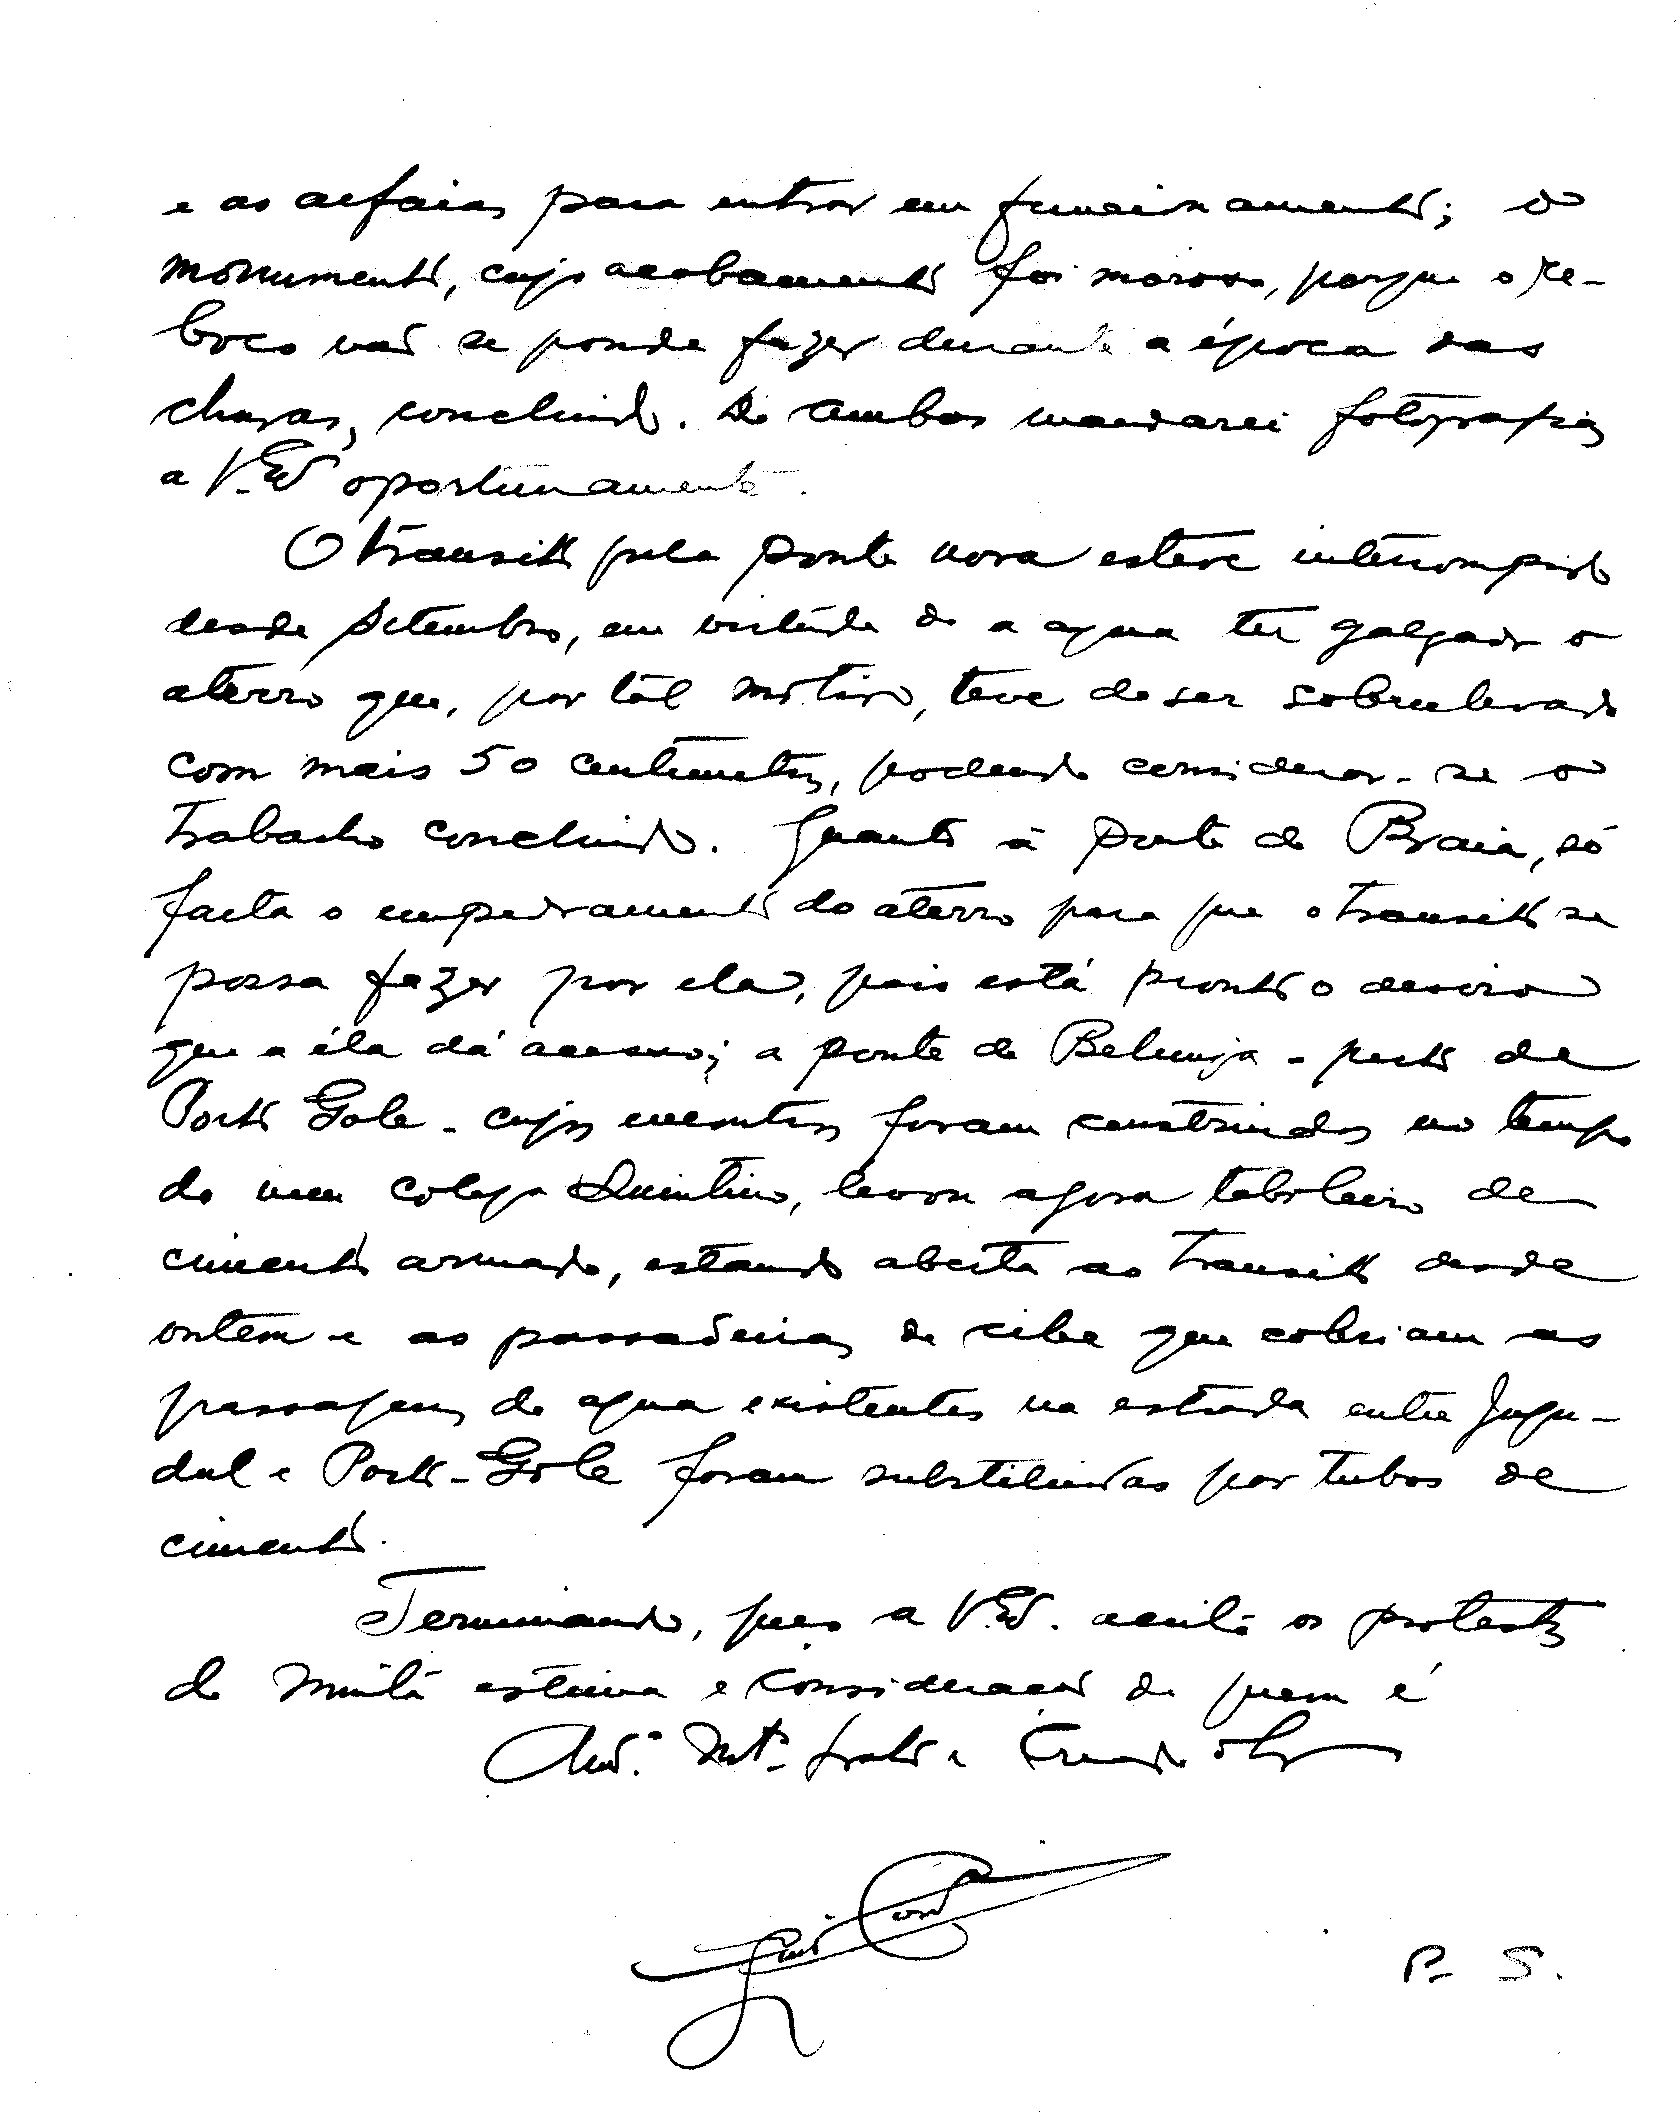 e as alfaias para entrar em funcionamento; o
monumento, cujo acabamento foi moroso, porque o re-
boco não se ponde fazer durante a época das
chuvas, concluido. De ambos mandarei fotografias
a V. Exª oportunamente.
O transito pela ponte nova esteve interrompido
desde Setembro, em virtude de a agua ter galgado o
aterro que, por tal motivo, teve de ser sobrelevado
com mais 50 centimetros, podendo considerar-se o
trabalho concluido. Quanto à ponte de Braia, só
falta o empedramento do aterro para que o transito se
possa fazer por ela, pois está pronto o desvio
que a éla dá acesso; a ponte de Belunja - perto de
Porto Gole - cujos encontros foram construidos no tempo
do meu colega Quintino, levou agora taboleiro de
cimento armado, estando aberta ao transito desde
ontem e as passadeiras de cibe que cobriam as
passagens de agua existentes na estrada entre Jugu-
dul e Porto-Gole foram substituidas por tubos de
cimento.
Terminando, peço a V. Exª. aceite os protestos
de muita estima e consideração de quem é
Amº. Mtº. grato e Criado obgº
Luís
P. S.